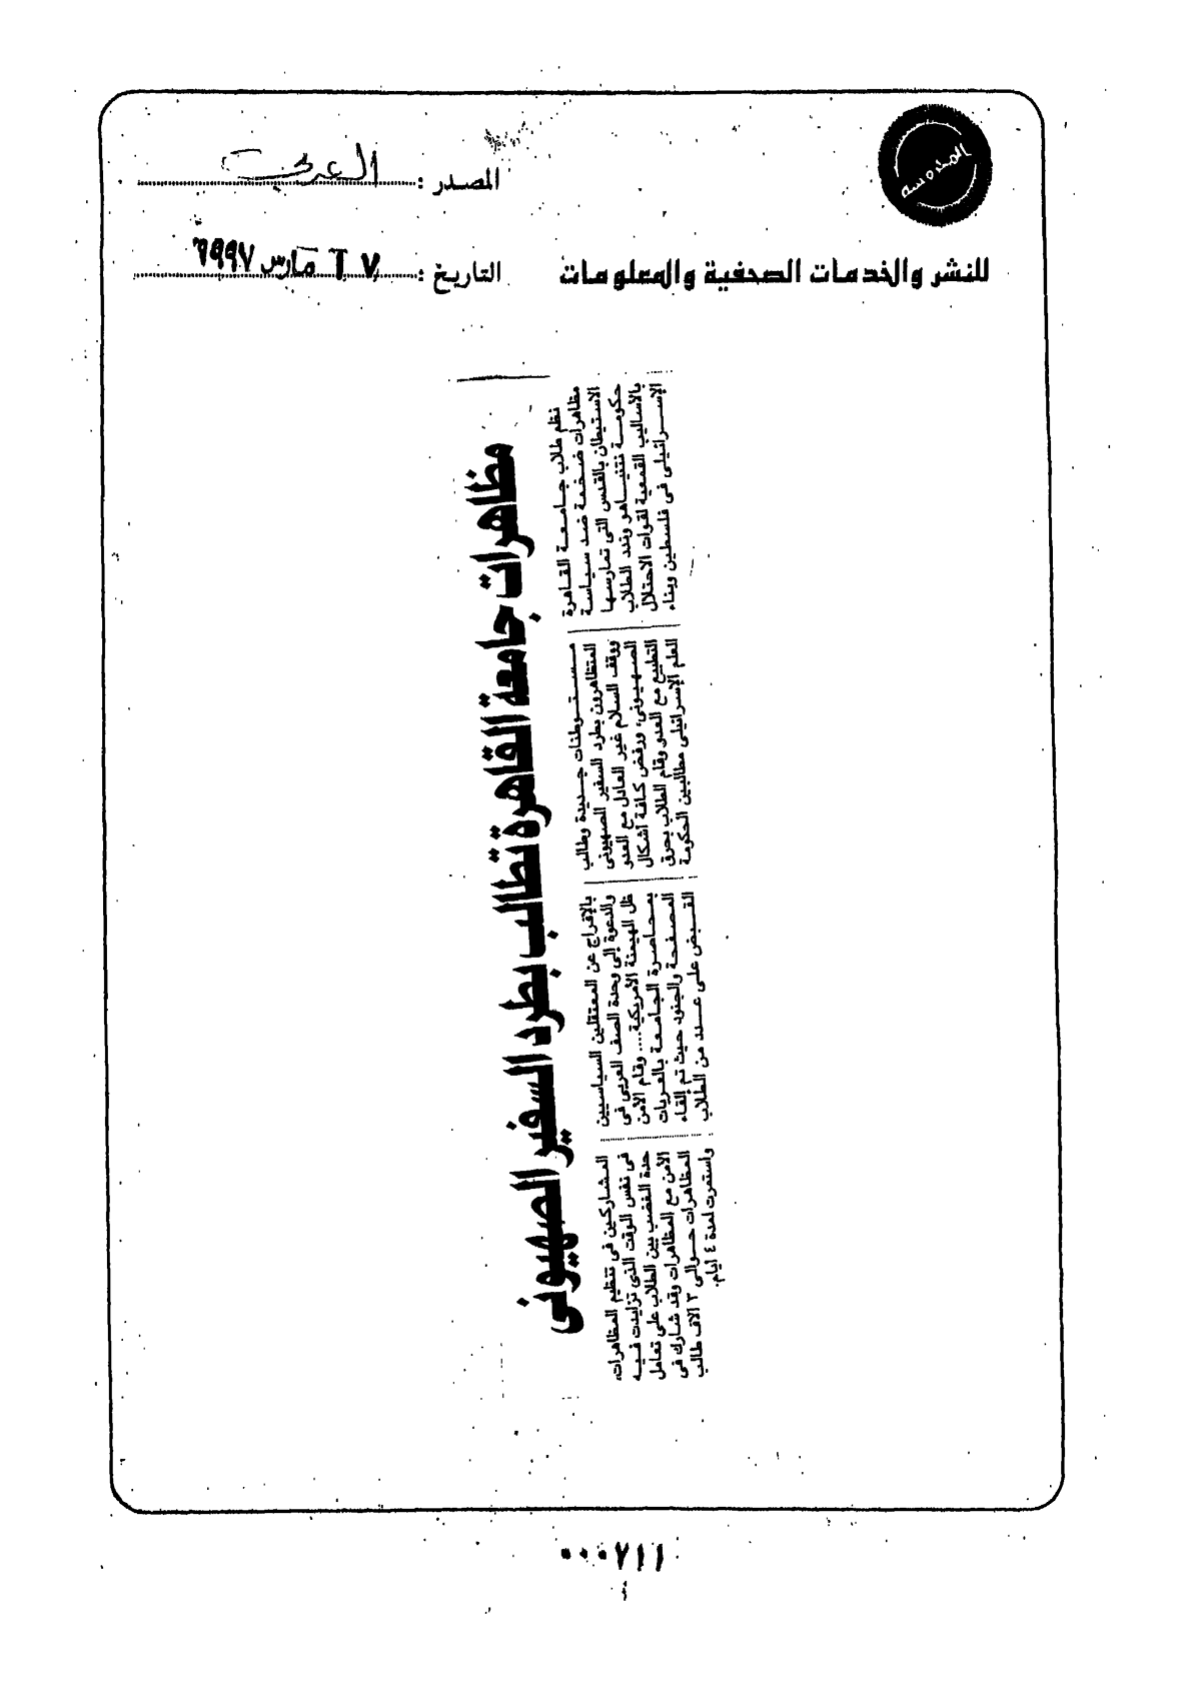 المحروسة
المصدر : العربى
للنشر والخدمات الصحفية والمعلومات
التاريخ : ٢٧ مارس ١٩٩٧
مظاهرات جامعة القاهرة تطالب بطرد السفير الصهيونى
نظم طلاب جامعة القاهرة
مظاهرات ضخمة ضد سياسة
الاستيطان بالقدس التى تمارسها
حكومة نتنياهو وندد الطلاب
بالأساليب القمعية لقوات الاحتلال
الإسرائيلى فى فلسطين وبناء
مستوطنات جديدة وطالب
المتظاهرون بطرد السفير الصهيونى
ووقف السلام غير العادل مع العدو
الصهيونى، ورفض كافة أشكال
التطبيع مع العدو وقام الطلاب بحرق
العلم الإسرائيلى مطالبين الحكومة
بالإفراج عن المعتقلين السياسيين
والدعوة إلى وحدة الصف العربى فى
ظل الهيمنة الأمريكية.... وقام الأمن
بمحاصرة الجامعة بالعربات
المصفحة والجنود حيث تم إلقاء
القبض على عدد من الطلاب
المشاركين فى تنظيم المظاهرات،
فى نفس الوقت الذى تزايدت فيه
حدة الغضب بين الطلاب على تعامل
الأمن مع المظاهرات وقد شارك فى
المظاهرات حوالى ٣ آلاف طالب
واستمرت لمدة ٤ أيام.
٠٠٠٧١١